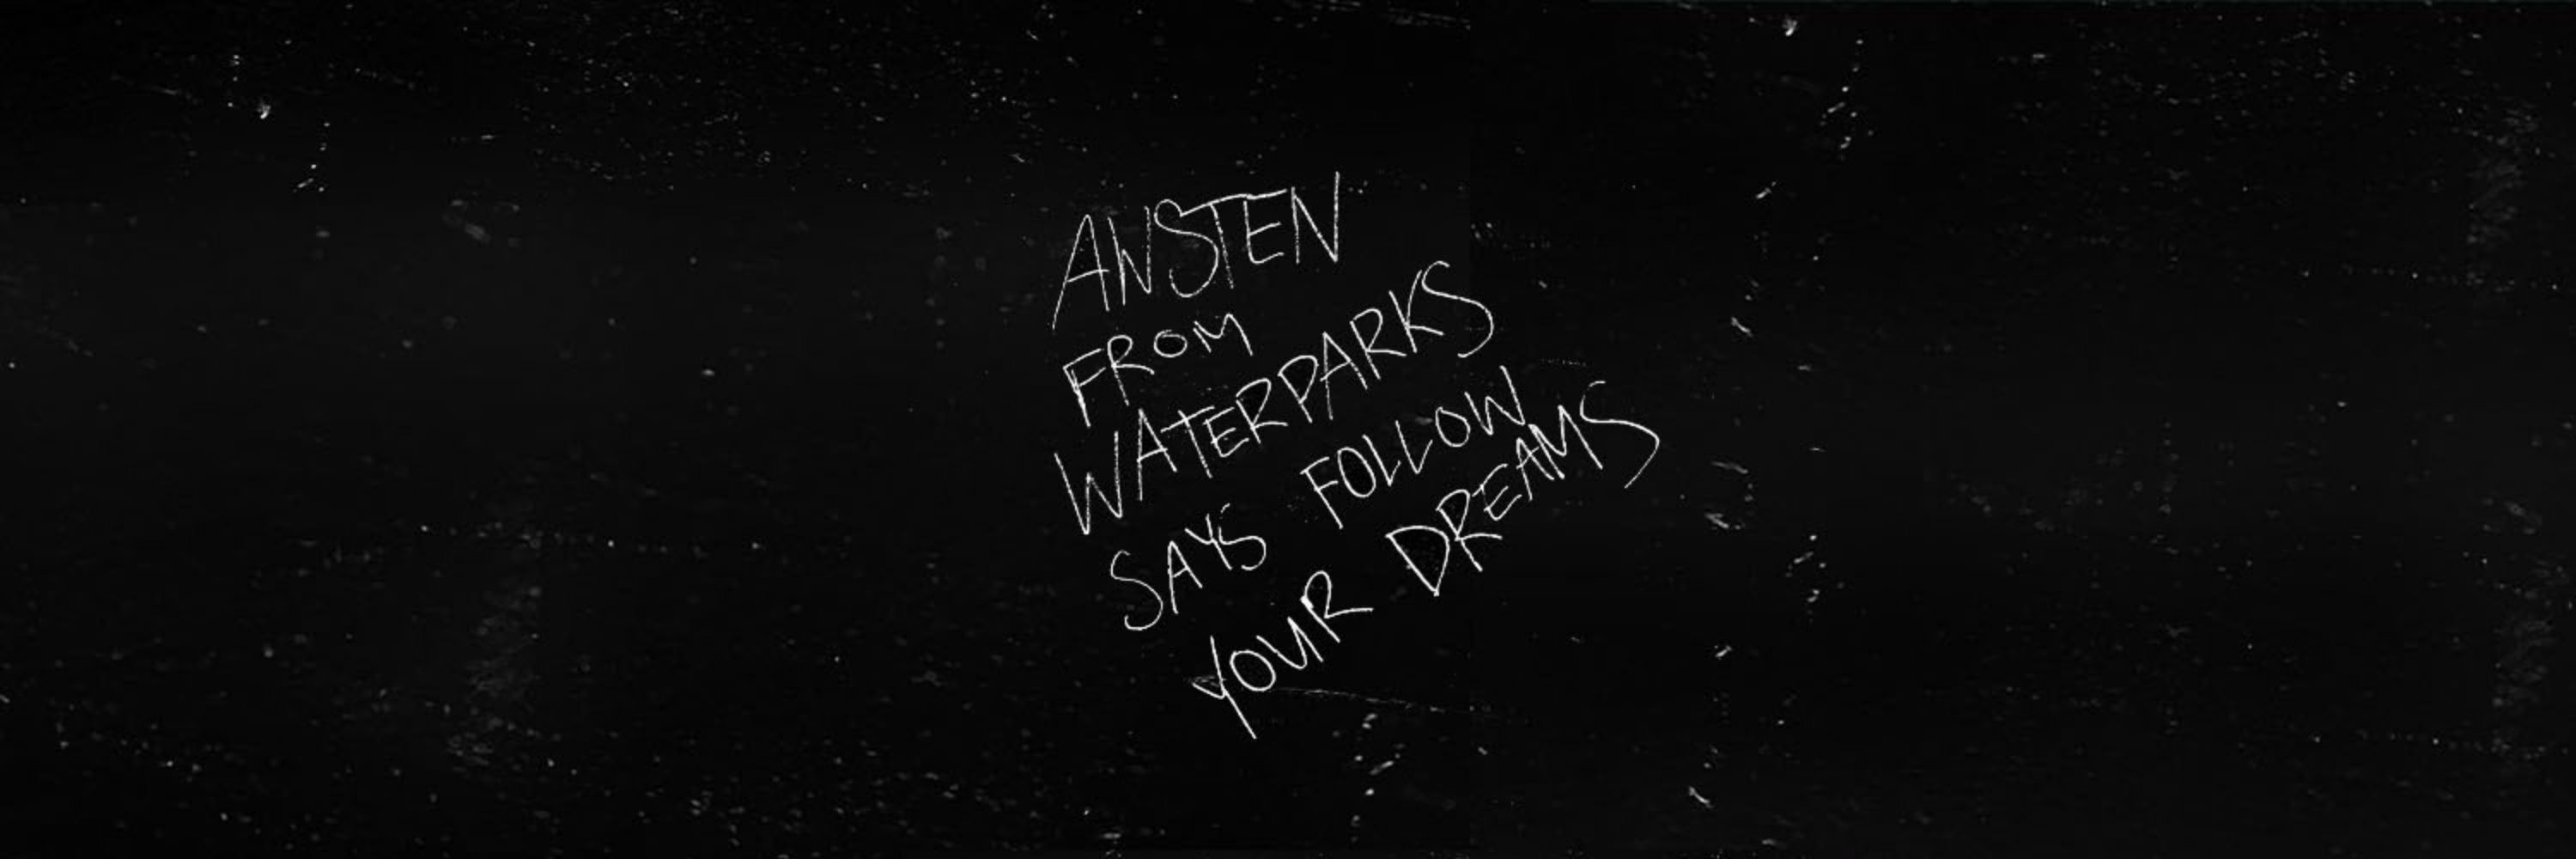 AWSTEN
FROM
WATERPARKS
SAYS FOLLOW
YOUR DREAMS